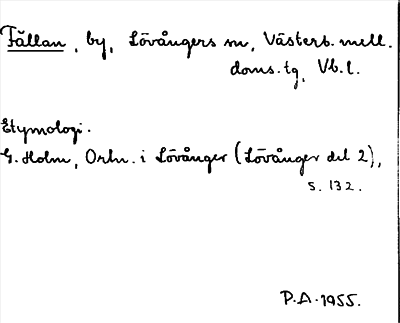 Fällan, by, Lövångers sn, Västerb. mell.
doms. tg, Vb. l.
Etymologi.
G. Holm, Ortn. i Lövånger (Lövånger del 2),
s. 132.
P.A. 1955.